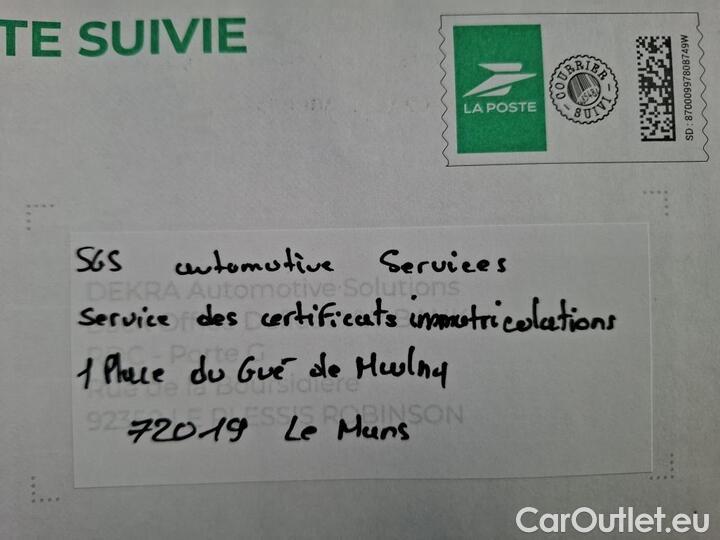 TE SUIVIE
LA POSTE
COURRIER
SUIVI
SD : 87000997808749W
SGS automotive Services
DEKRA Automotive Solutions
Service des certificats immatriculations
PDC - Porte G
1 Place du Gué de Maulny
Rue de la Boursidière
92350 LE PLESSIS ROBINSON
72019 Le Mans
CarOutlet.eu